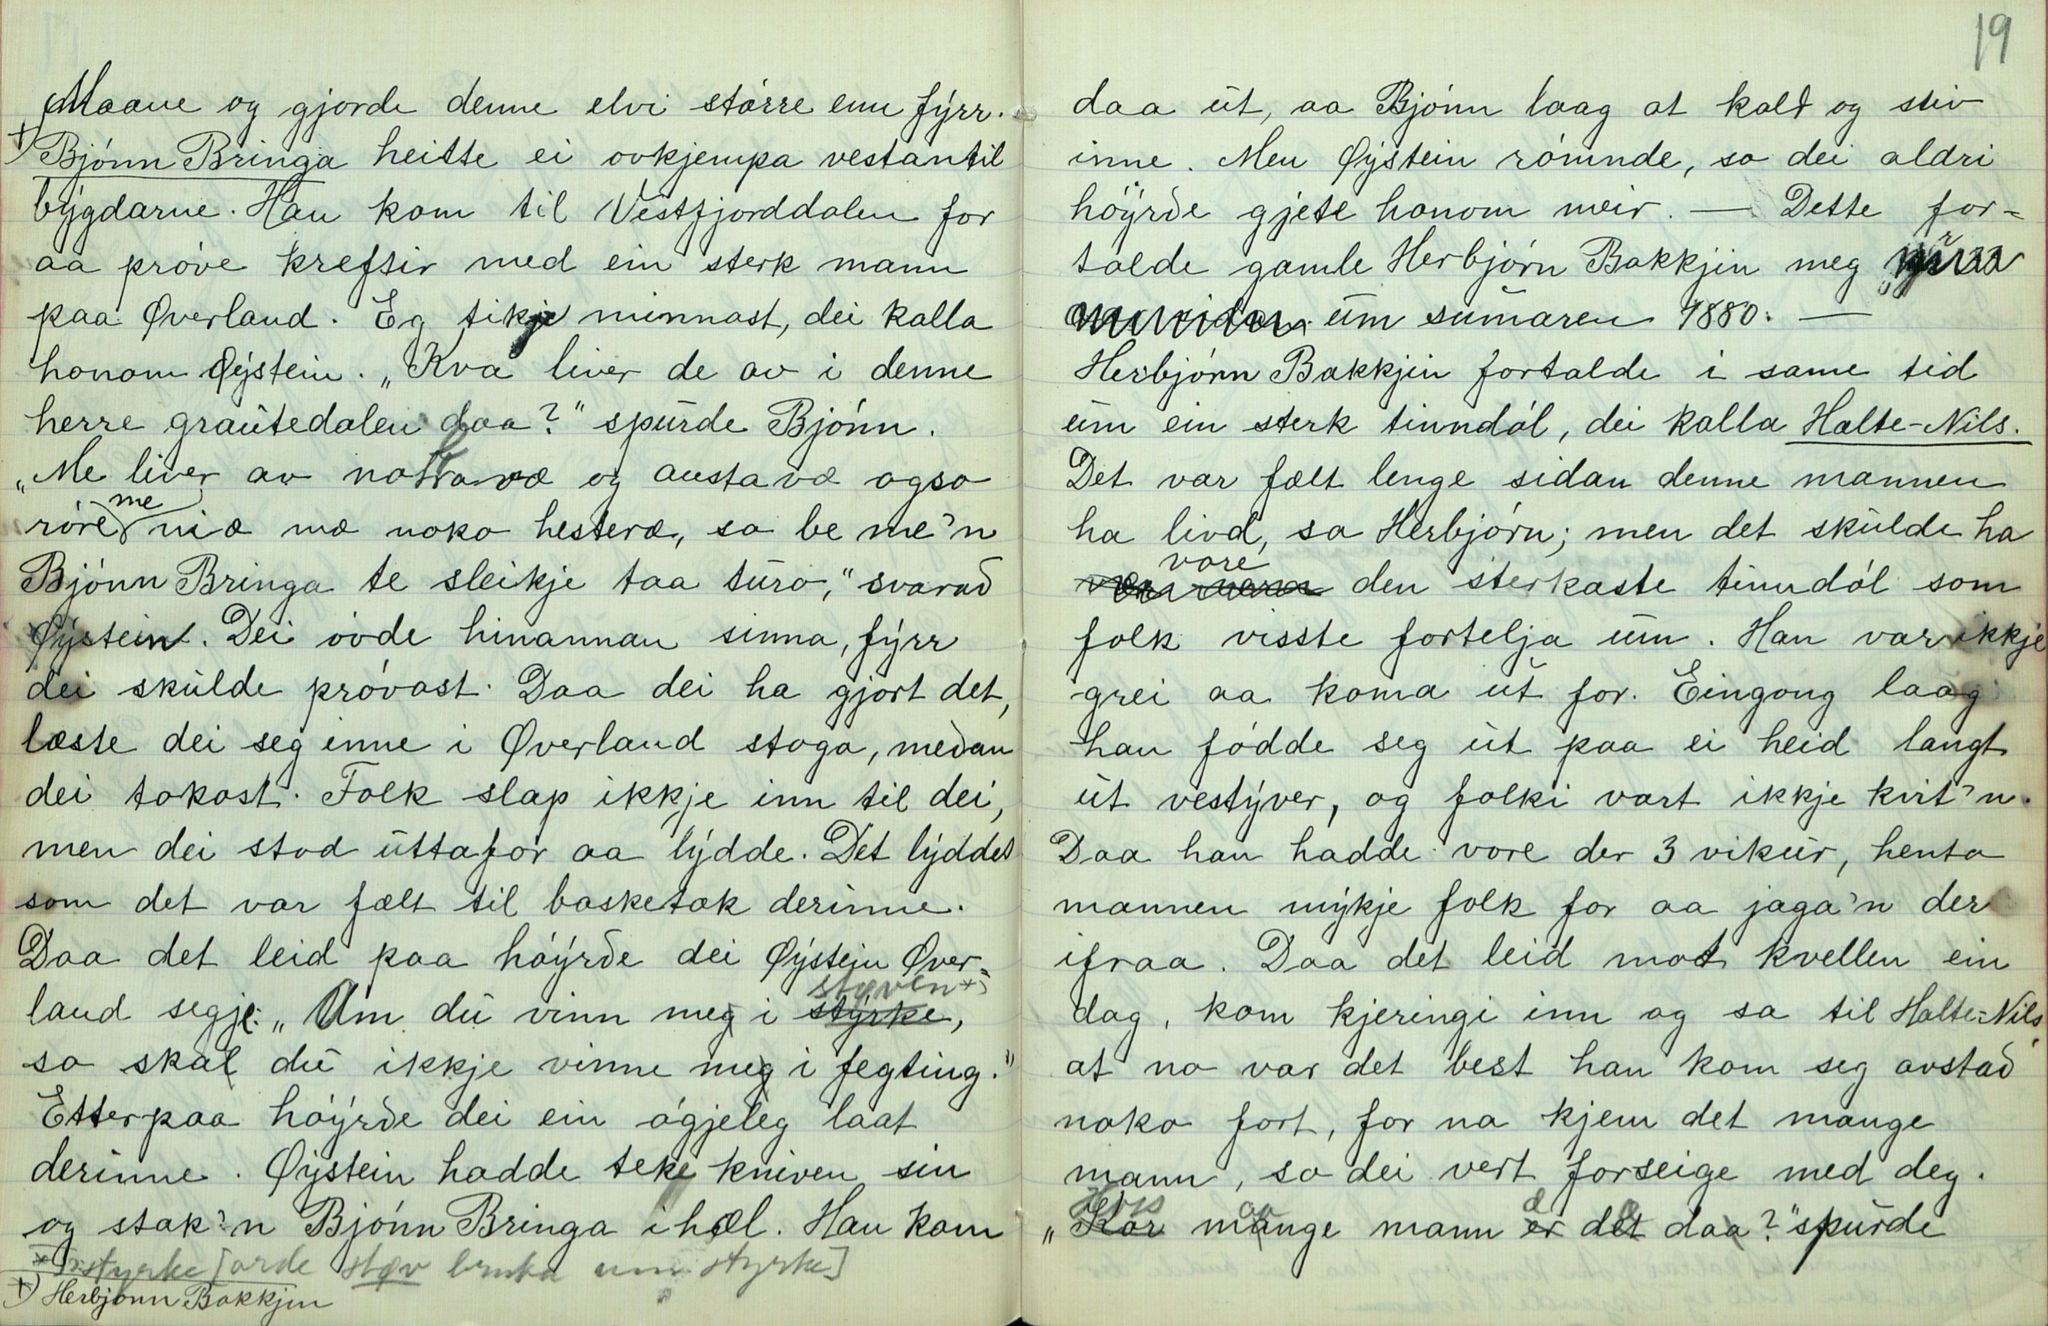 Maane og gjorde denne elvi större enn fýrr.
+) Bjónn Bringa heitte ei ovkjempa vestantil
býgdarne. Han kom til Vestfjorddalen for
aa próve krefsir med ein sterk mann
paa Øverland. Eg fikje minnast, dei kalla
honom Øýstein. „Kva liver de av i denne
herre grautedalen daa?" spurde Bjónn.
„Me liver av notravæ og austavæ ogso
me
róre niæ mæ noko hesteræ, so be me'n
Bjónn Bringa te sleikje taa turo," svarað
Øýstein. Dei óvde hinannan sinna, fýrr
dei skulde próvast. Daa dei ha gjort det,
læste dei seg inne i Øverland stoga, meðan
dei tokost. Folk slap ikkje inn til dei,
men dei stod uttafor aa lýdde. Det lýddest
som det var fælt til basketak derinne.
Daa det leid paa höýrde dei Øýstein Øver=
støven *)
land segje: „Um du vinn meg i styrke,
so skal du ikkje vinne meg i fegting."
Etterpaa höýrðe dei ein ógjeleg laat
derinne. Øýstein hadde teke kniven sin
og stak'n Bjónn Bringa ihæl. Han kom
*) styrke [orde støv bruka um styrke]
+) Herbjónn Bakkjin
19
daa ut, aa Bjónn laag at kald og stiv
inne. Men Øýstein rómnde, so dei aldri
höýrðe gjete honom meir. — Dette for=
talde gamle Herbjórn Bakkjin meg
um sumaren 1880. —
Herbjórn Bakkjin fortalde i same tid
um ein sterk tinndól, dei kalla Halte-Nils.
Det var fælt lenge sidan denne mannen
ha livd, sa Herbjórn; men det skulde ha
vore
den sterkaste tinndól som
folk visste fortelja um. Han var ikkje
grei aa koma ut for. Eingong laag
han fódde seg ut paa ei heid langt
ut vestýver, og folki vart ikkje kvit'n.
Daa han hadde vore der 3 vikur, henta
mannen mýkje folk for aa jaga'n der
ifraa. Daa det leid mot kvellen ein
dag, kom kjeringi inn og sa til Halte-Nils
at no var det best han kom seg avstað
noko fort, for na kjem det mange
mann, so dei vert forseige med deg.
„Kor mange mann er det daa?" spurde